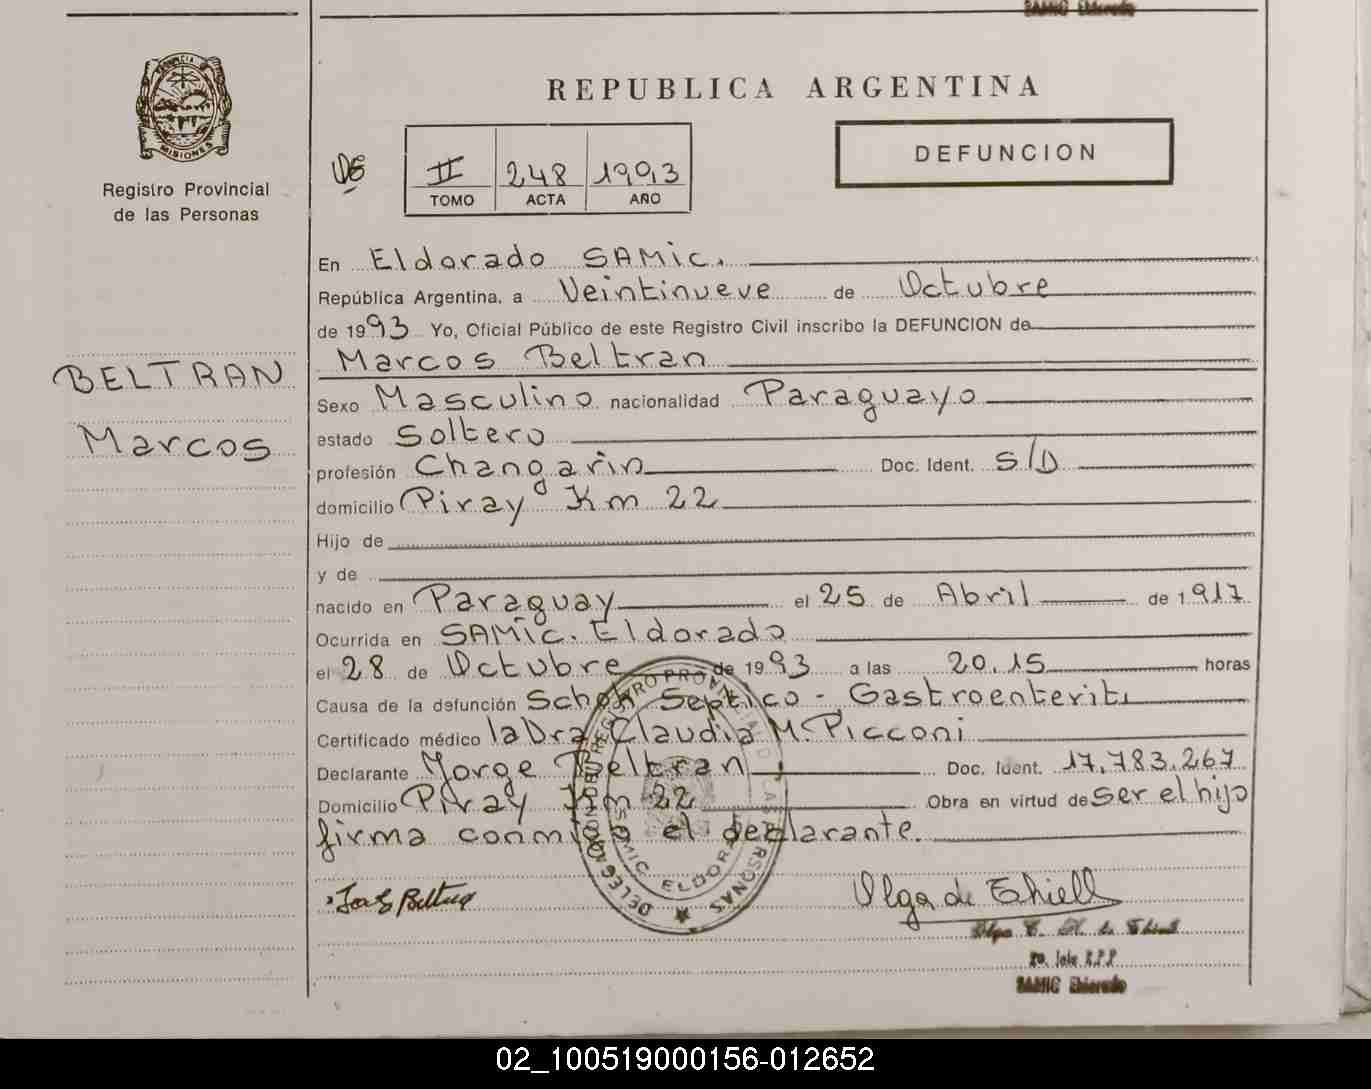 SAMIC Eldorado
PROVINCIA DE
MISIONES
Registro Provincial
de las Personas
REPUBLICA ARGENTINA
DEFUNCION
II 248 1993
TOMO ACTA AÑO
En Eldorado SAMic.
República Argentina, a Veintinueve de Octubre
de 1993 Yo, Oficial Público de este Registro Civil inscribo la DEFUNCION de
Marcos Beltran
BELTRAN
Marcos
Sexo Masculino nacionalidad Paraguayo
estado Soltero
profesión Changarin Doc. Ident. S/D
domicilio Piray Km 22
Hijo de
y de
nacido en Paraguay el 25 de Abril de 1.917
Ocurrida en SAMic. Eldorado
el 28 de Octubre de 1993 a las 20.15 horas
Causa de la defunción Schok Septico - Gastroenteritis
Certificado médico la Dra Claudia M. Picconi
Declarante Jorge Beltran Doc. Ident. 17.783.267
Domicilio Piray Km 22 Obra en virtud de ser el hijo
firma conmigo el declarante.
DELEGACION DEL REGISTRO PROVINCIAL DE LAS PERSONAS
SAMIC ELDORADO
Olga de Thiell
SAMIC Eldorado
02_100519000156-012652